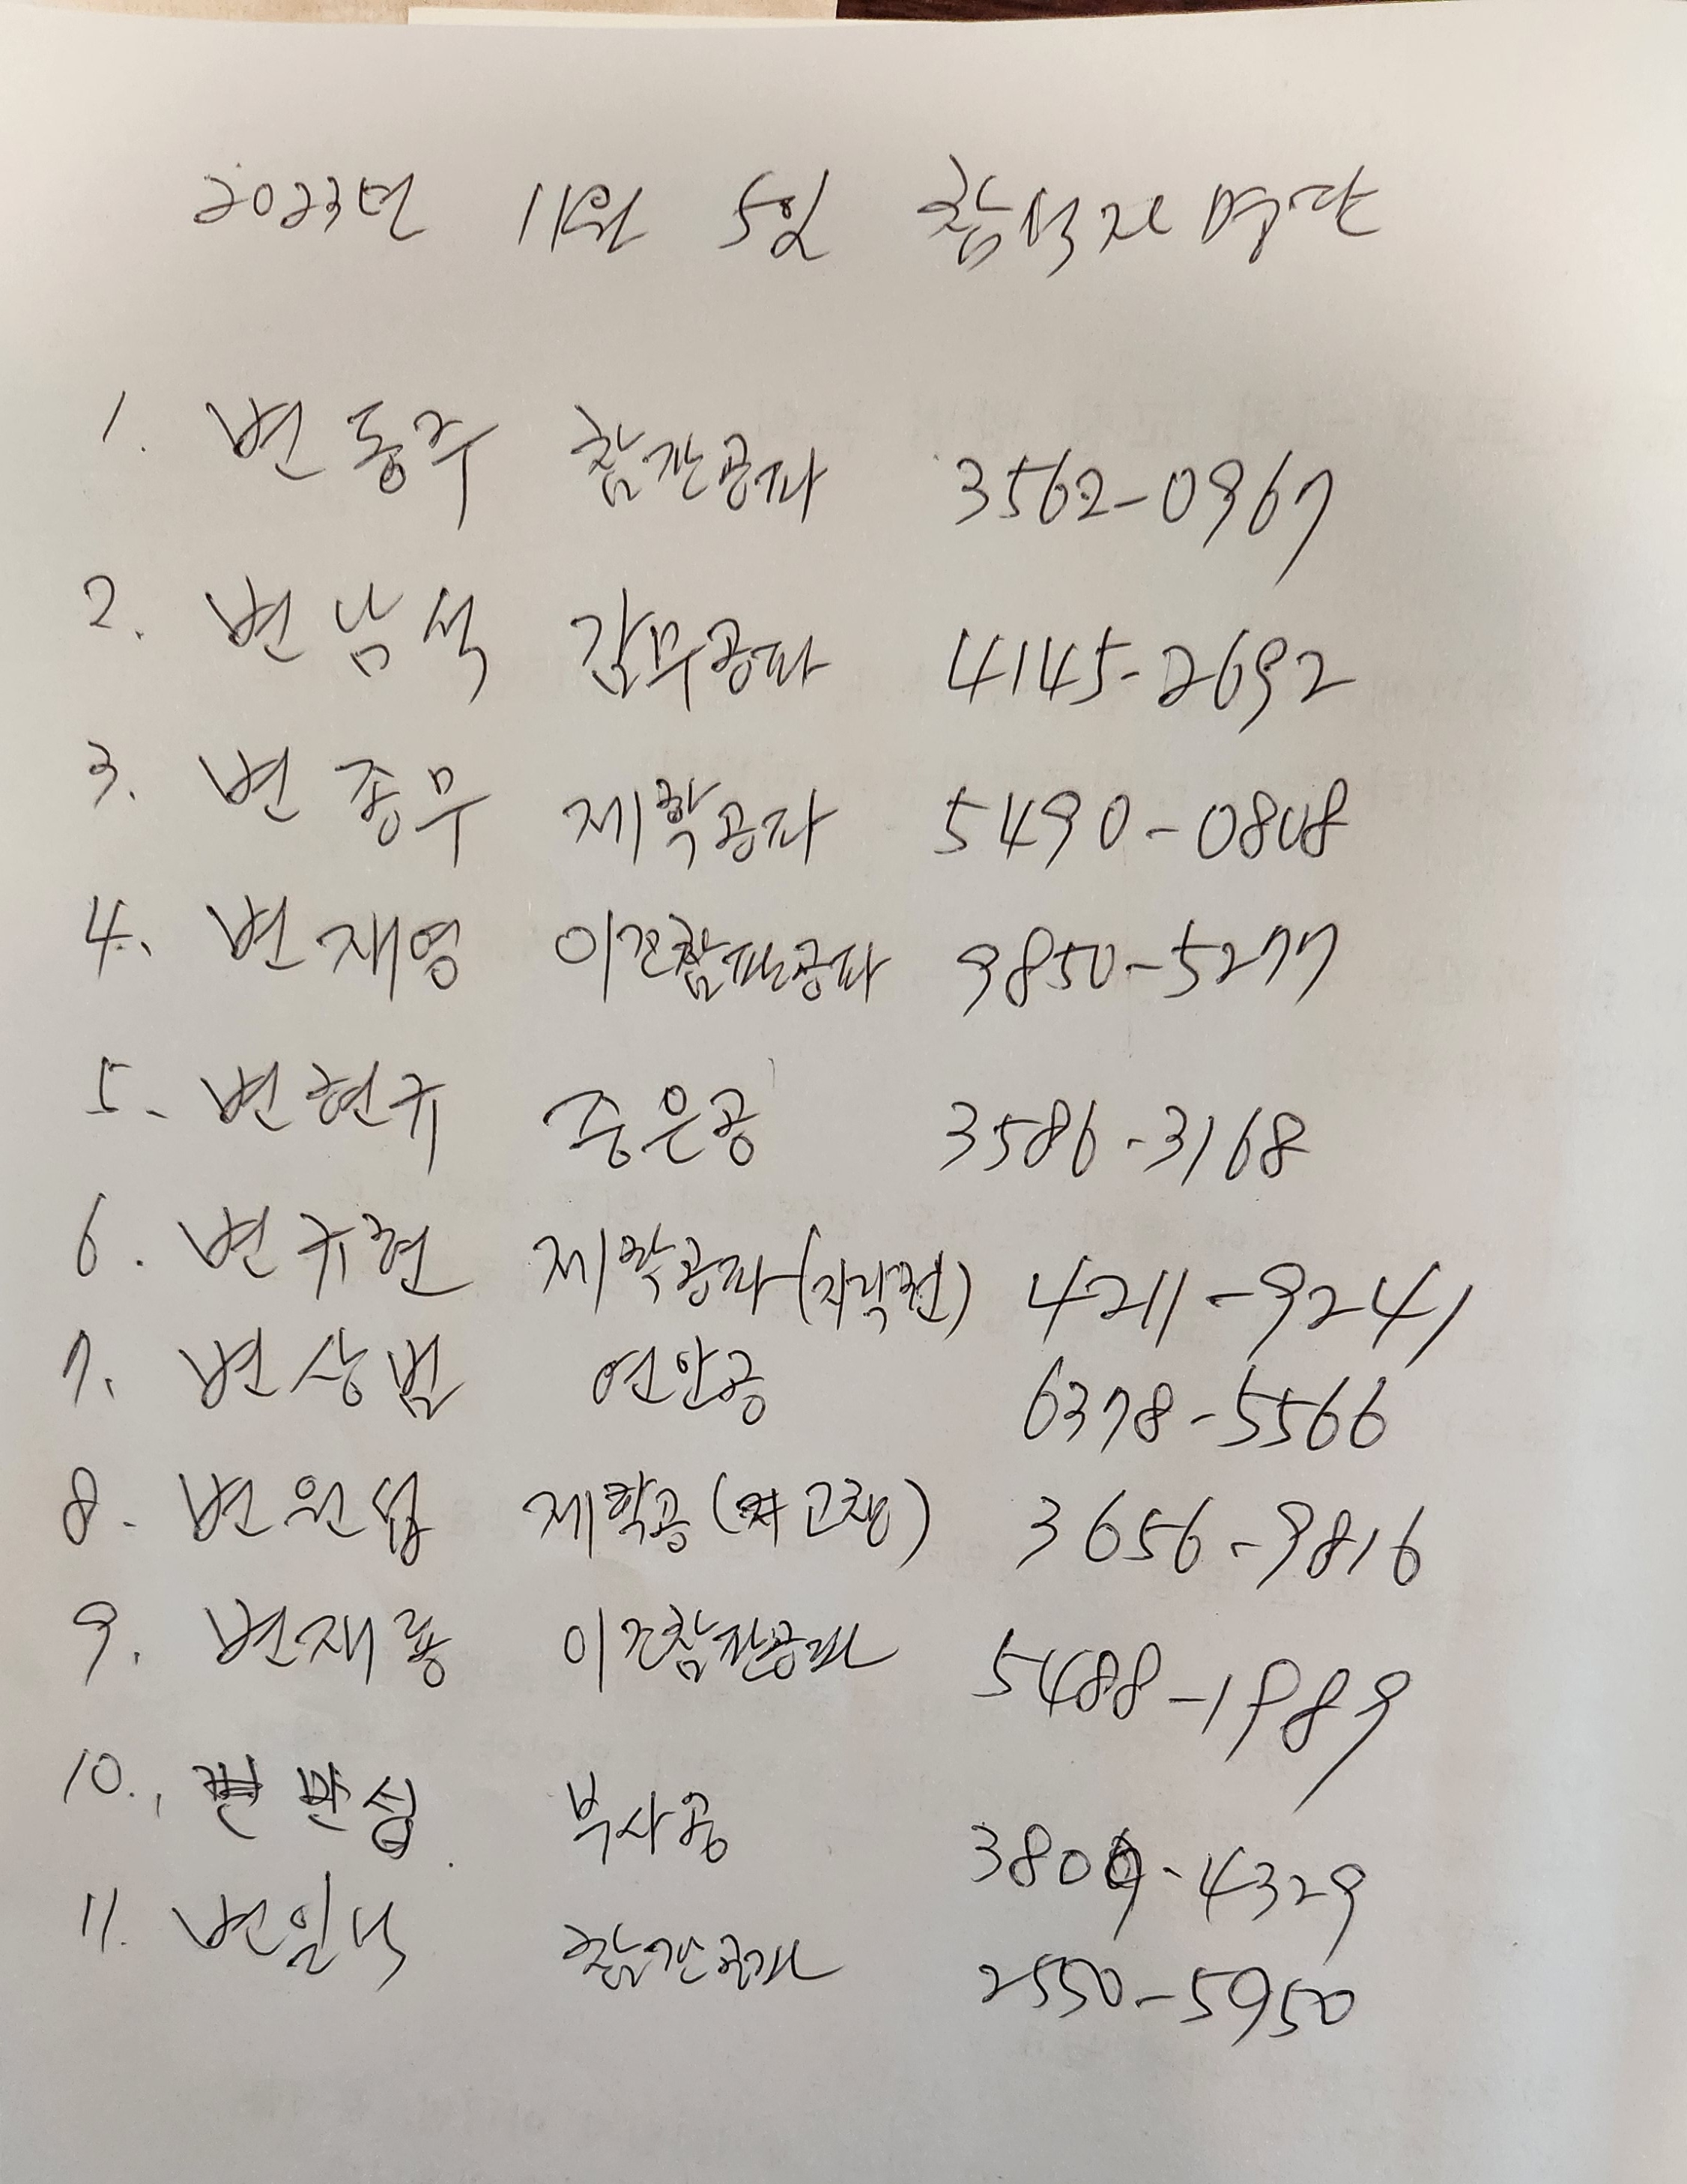 2023년 11월 5일 참석자 명단
1. 변동주 참판공파 3562-0967
2. 변남석 감무공파 4145-2692
3. 변종무 제학공파 5490-0808
4. 변재영 이조참판공파 9850-5277
5. 변현규 종은공 3586-3168
6. 변규현 제학공파 4211-9241
7. 변상범 연안공 6378-5566
8. 변원섭 제학공 (고창) 3656-9816
9. 변재룡 이조참판공파 5488-1989
10. 변만섭 부사공 4329
11. 변일석 참판공파 2550-5950